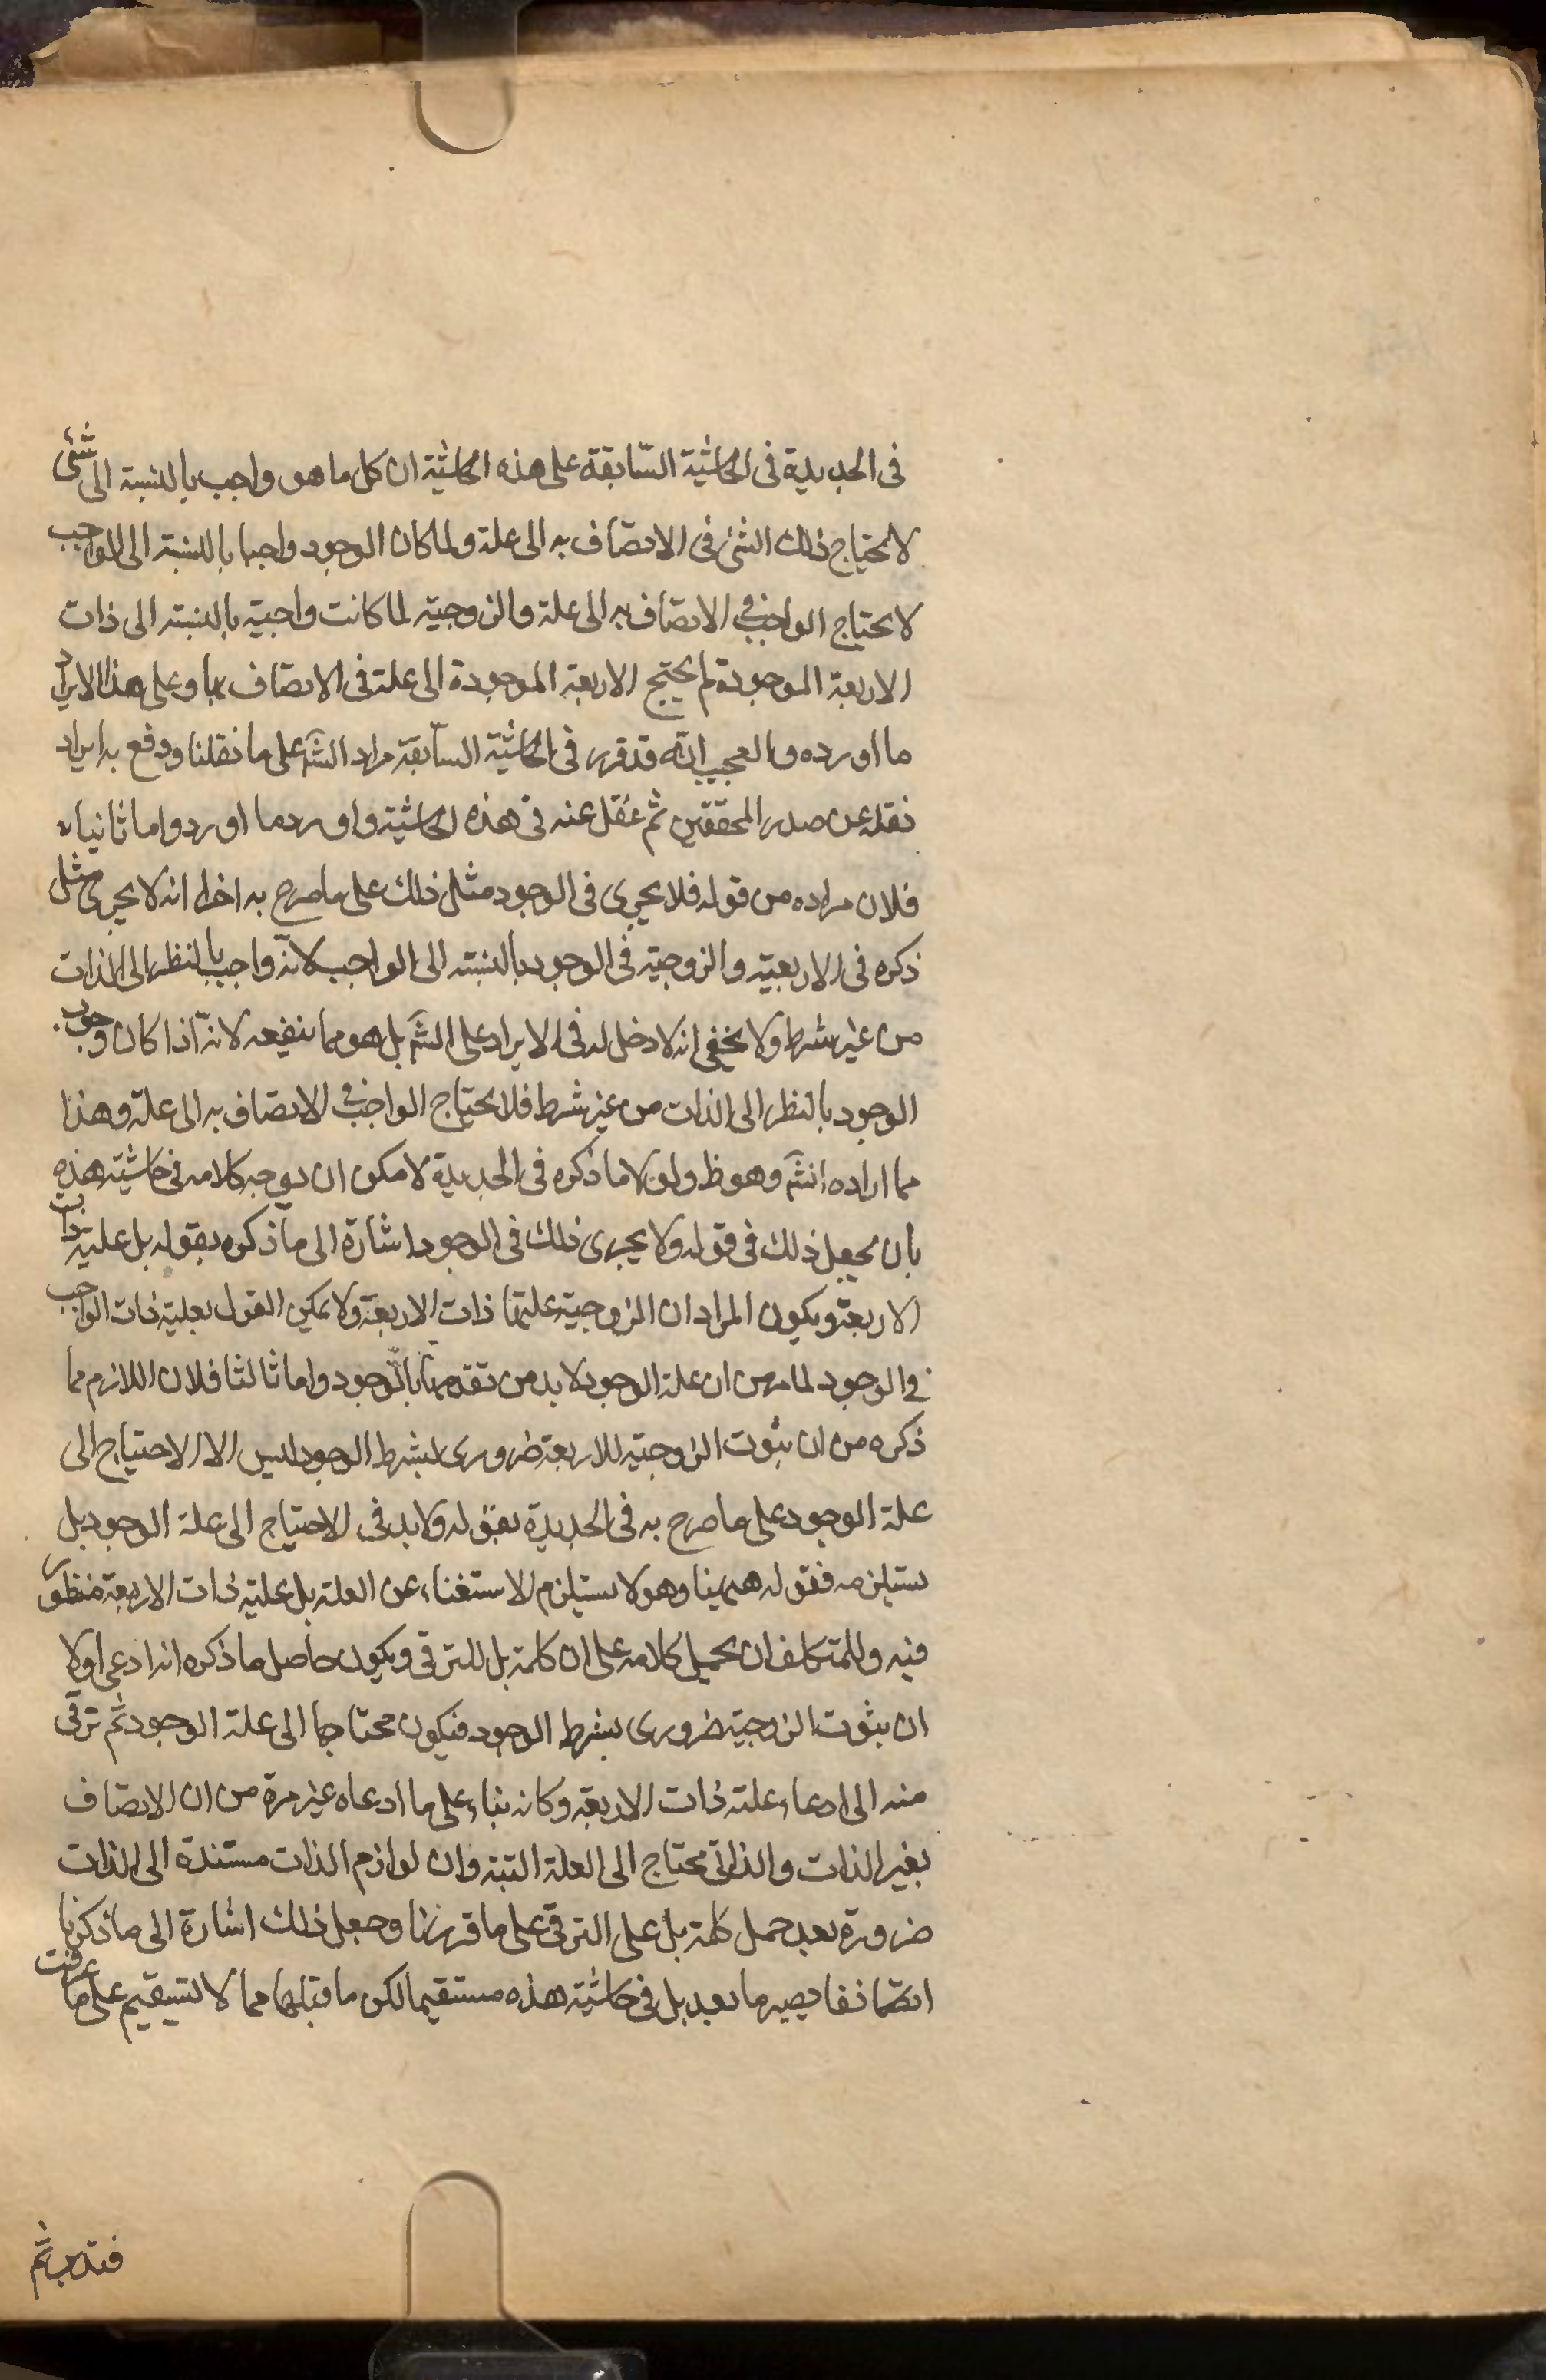 فى الجديدة فى الحاشية السّابقة على هذه الحاشية ان كل ما هو واجب بالنسبة الى شئ
لا يحتاج ذلك الشئ فى الاتصاف به الى علة ولما كان الوجود واجبا بالنسبة الى الواجب
لا يحتاج الواجب فى الاتصاف به الى علة والزوجية لما كانت واجبة بالنسبة الى ذات
الاربعة الموجودة لم يحتج الاربعة الموجودة الى علة فى الاتصاف بها وعلى هذا الايراد
ما اورده والعجب انّه قد قرر فى الحاشية السّابقة مراد الشّ على ما نقلنا ودفع به ايراد
نقله عن صدر المحققين ثم غفل عنه فى هذه الحاشية واورد ما اورد واما ثانيا
فلان مراده من قوله فلا يجرى فى الوجود مثل ذلك على ما صرح به اخرا انه لا يجرى مثل
ذكره فى الاربعية والزوجية فى الوجود بالنسبة الى الواجب لانّه واجب بالنظر الى الذات
من غير شرط ولا يخفى انه لا دخل له فى الايراد على الشّ بل هو مما ينفعه لانّه اذا كان وجوب
الوجود بالنظر الى الذات من غير شرط فلا يحتاج الواجب فى الاتصاف به الى علة وهذا
مما اراده الشّ وهو ظ ولو لا ما ذكره فى الجديدة لامكن ان يوجه كلامه فى حاشية هذه
بان يجعل ذلك فى قوله ولا يجرى ذلك فى الوجود اشارة الى ما ذكره بقوله بل علية ذات
الاربعة ويكون المراد ان الزوجية علتها ذات الاربعة ولا يمكن القول بعلية ذات الواجب
فى الوجود لما مر من ان علة الوجود لا بد من تقدمها بالوجود واما ثالثا فلان اللازم مما
ذكره من ان ثبوت الزوجية للاربعة ضرورى بشرط الوجود ليس الا الاحتياج الى
علة الوجود على ما صرح به فى الجديدة بقوله ولا بد فى الاحتياج الى علة الوجود بل
يستلزمه فقوله ههينا وهو لا يستلزم الاستغناء عن العلة بل علية ذات الاربعة منظور
فيه وللمتكلف ان يحمل كلامه على ان كلمة بل للترقى ويكون حاصل ما ذكره انه ادعى اولا
ان ثبوت الزوجية ضرورى بشرط الوجود فيكون محتاجا الى علة الوجود ثم ترقى
منه الى ادعاء علته ذات الاربعة وكانه بناء على ما ادعاه غير مرة من ان الاتصاف
بغير الذات والذاتى محتاج الى العلة البتة وان لوازم الذات مستندة الى الذات
ضرورة بعد حمل كلمة بل على الترقى على ما قررنا وجعل ذلك اشارة الى ما ذكرنا
ايضا نفا يصير ما بعد بل فى حاشية هذه مستقيما لكن ما قبلها مما لا يستقيم على ما عرفت
فتدبر ثم